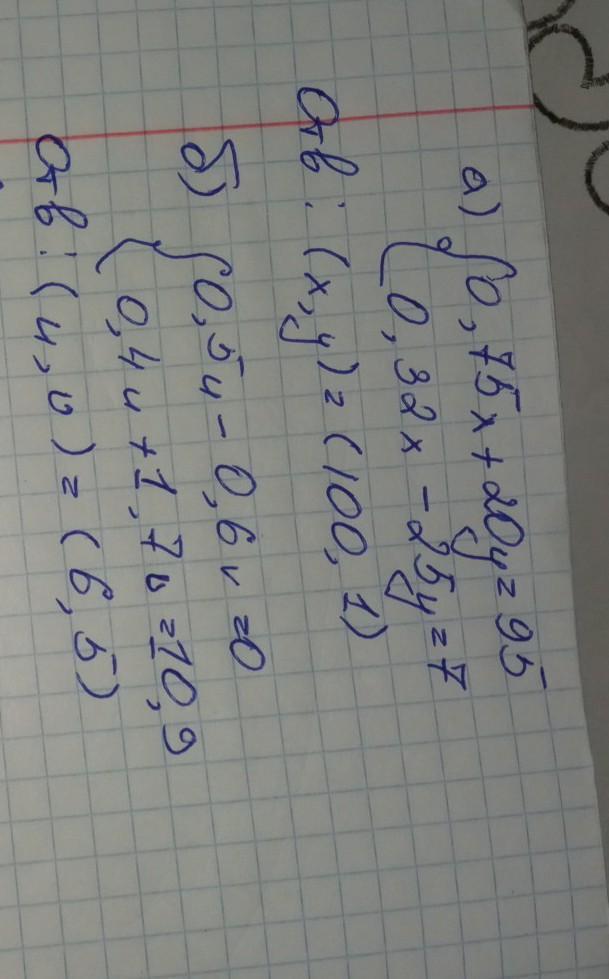 а) { 0,75x + 20y = 95
0,32x - 25y = 7
Отв: (x,y) = (100, 1)
б) { 0,5u - 0,6v = 0
0,4u + 1,7v = 10,9
Отв: (u, v) = (6, 5)